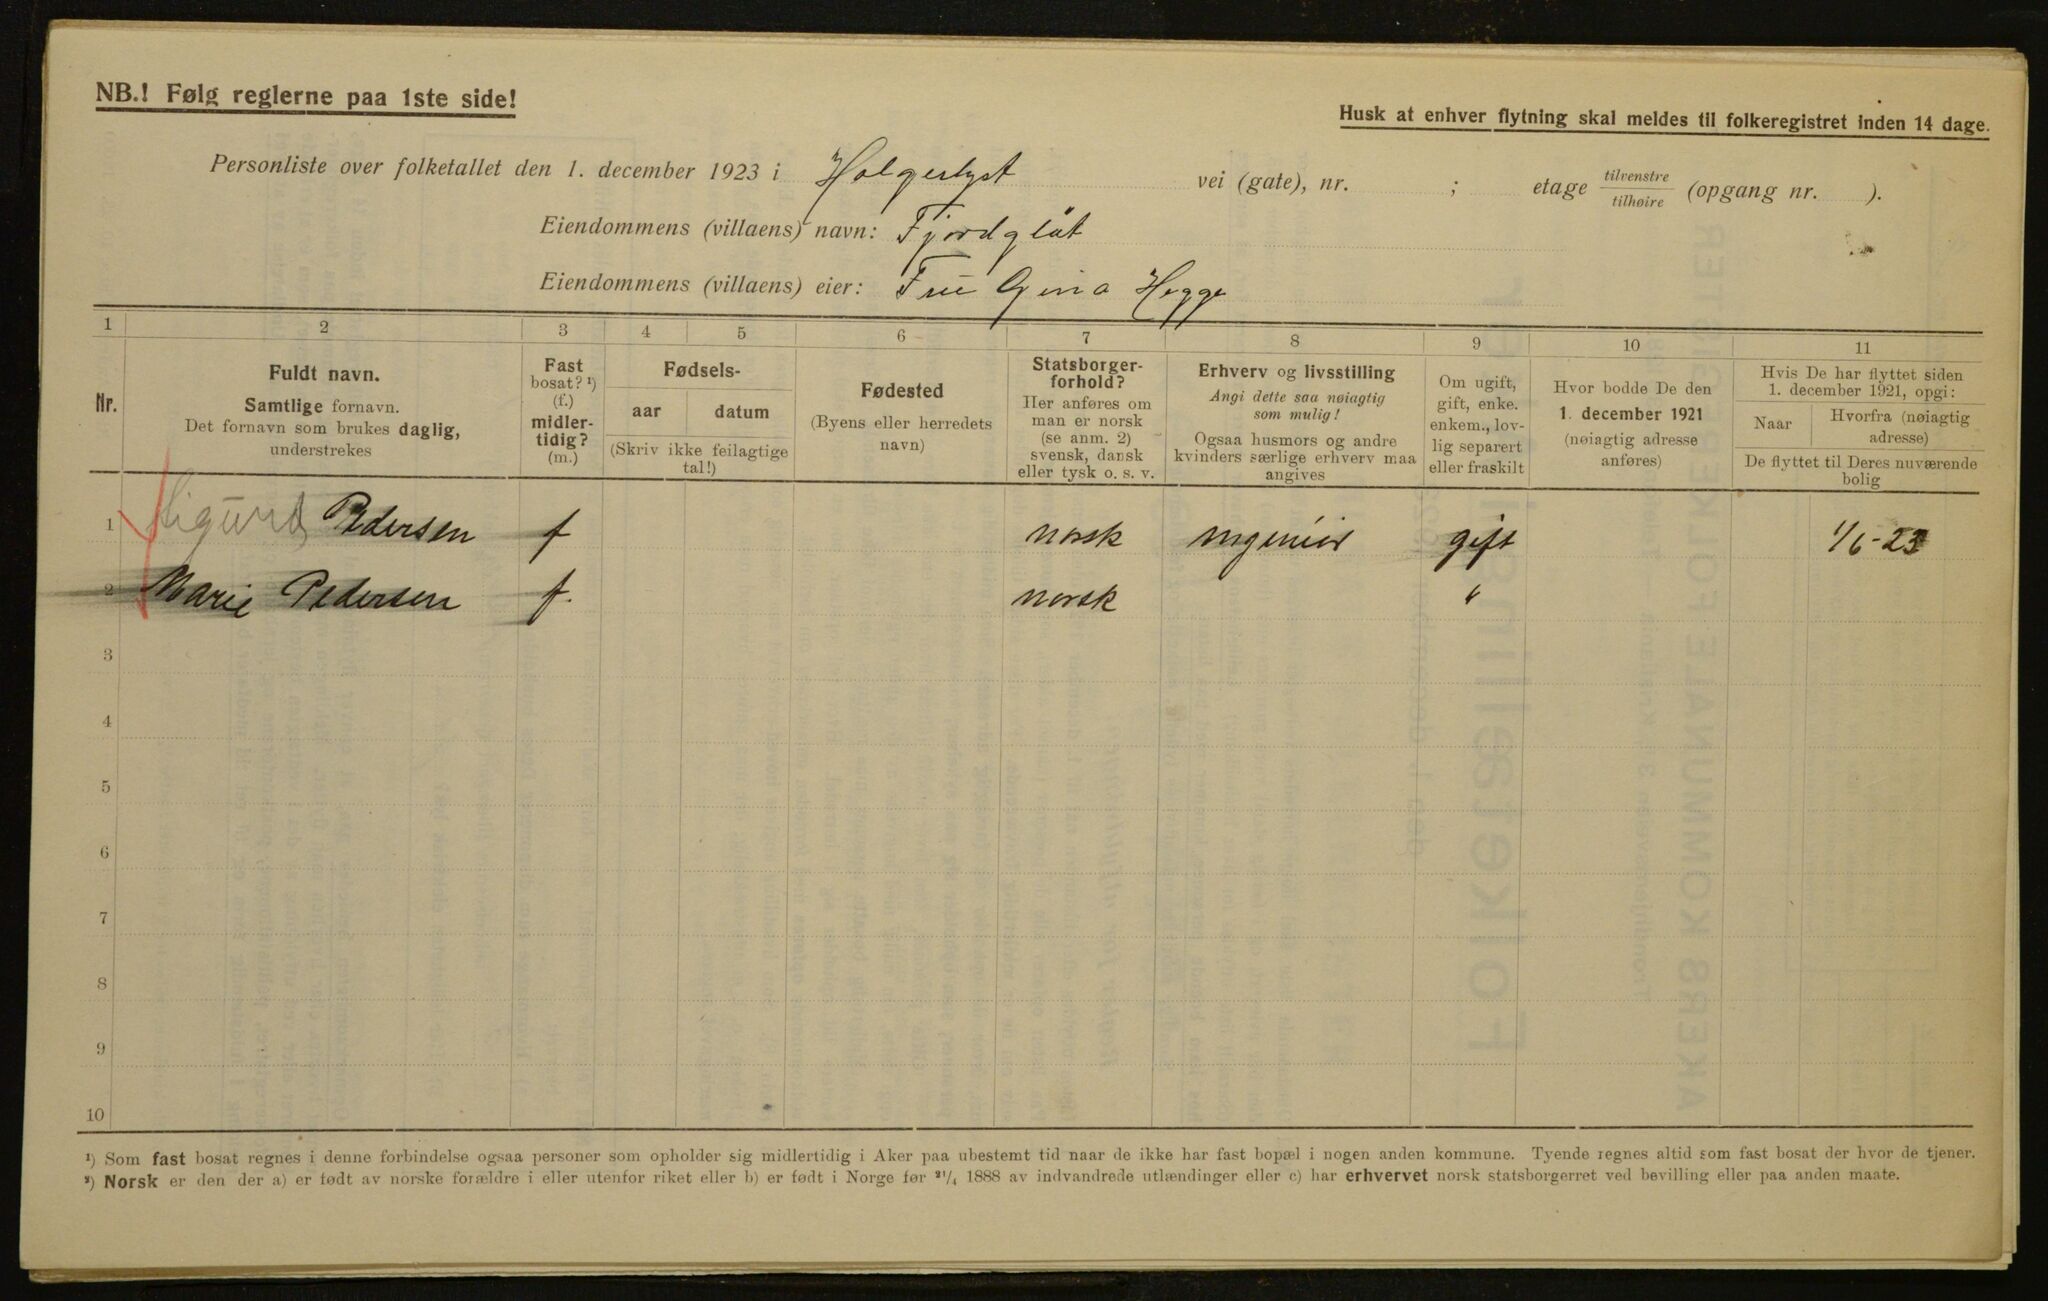 NB.! Følg reglerne paa 1ste side!
Husk at enhver flytning skal meldes til folkeregistret inden 14 dage.
Personliste over folketallet den 1. december 1923 i Holgerlyst vei (gate), nr. ; etage tilvenstre/tilhøire (opgang nr. ).
Eiendommens (villaens) navn: Fjordgløt
Eiendommens (villaens) eier: Frü Gina Hegge
1 2 3 4 5 6 7 8 9 10 11
Nr.
Fuldt navn.
Samtlige fornavn.
Det fornavn som brukes daglig,
understrekes
Fast
bosat? ¹)
(f.)
midler-
tidig?
(m.)
Fødsels-
aar datum
(Skriv ikke feilagtige
tal!)
Fødested
(Byens eller herredets
navn)
Statsborger-
forhold?
Her anføres om
man er norsk
(se anm. 2)
svensk, dansk
eller tysk o. s. v.
Erhverv og livsstilling
Angi dette saa nøiagtig
som mulig!
Ogsaa husmors og andre
kvinders særlige erhverv maa
angives
Om ugift,
gift, enke.
enkem., lov-
lig separert
eller fraskilt
Hvor bodde De den
1. december 1921
(nøiagtig adresse
anføres)
Hvis De har flyttet siden
1. december 1921, opgi:
Naar Hvorfra (nøiagtig
adresse)
De flyttet til Deres nuværende
bolig
1 Sigurd Pedersen f norsk ingeniør gift 1/6-23
2 Marie Pedersen f. norsk "
3
4
5
6
7
8
9
10
¹) Som fast bosat regnes i denne forbindelse ogsaa personer som opholder sig midlertidig i Aker paa ubestemt tid naar de ikke har fast bopæl i nogen anden kommune. Tyende regnes altid som fast bosat der hvor de tjener.
²) Norsk er den der a) er født av norske forældre i eller utenfor riket eller b) er født i Norge før ²¹/₄ 1888 av indvandrede utlændinger eller c) har erhvervet norsk statsborgerret ved bevilling eller paa anden maate.